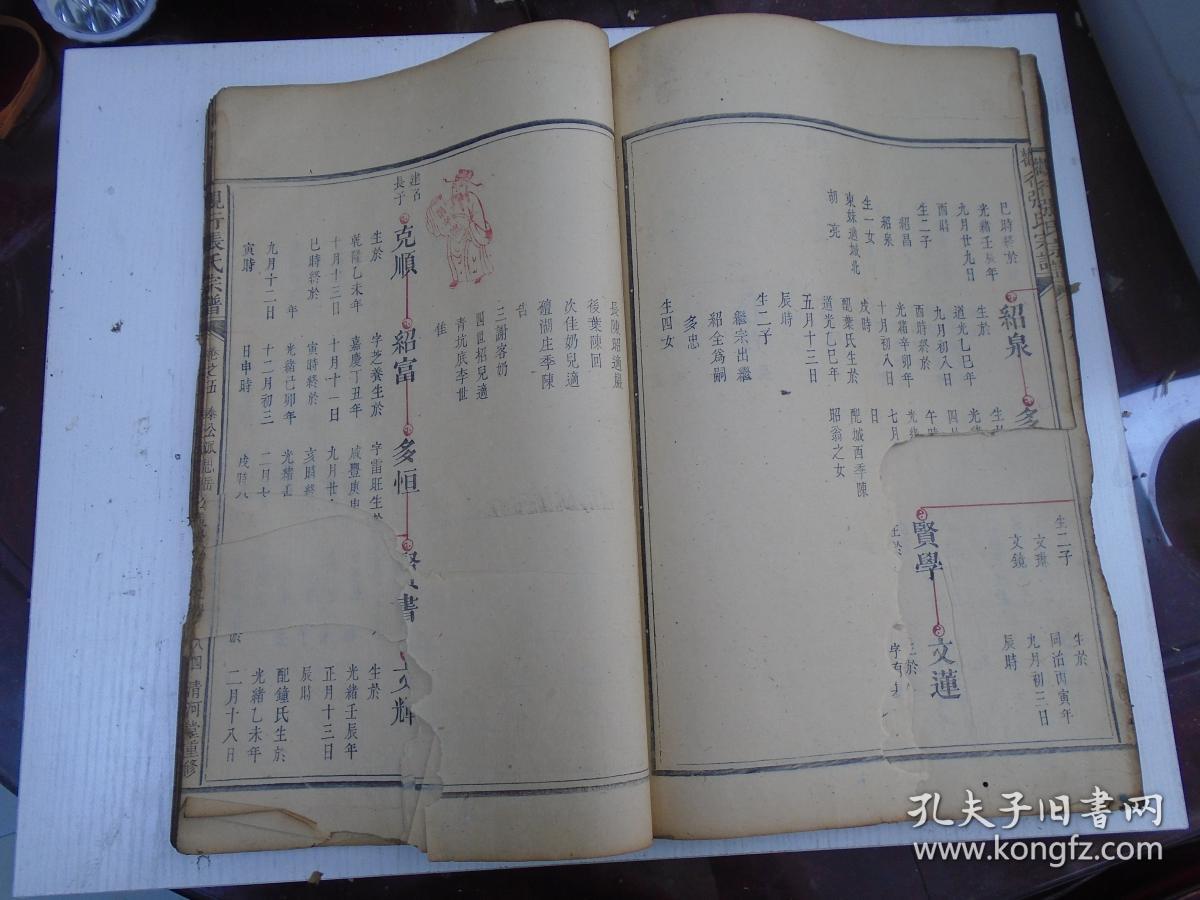 巳時終於
光緒壬辰年
九月廿九日
酉時
生二子
紹昌
紹泉
生一女
東妹適城北
胡亮
紹泉
生於
道光乙巳年
九月初八日
酉時終於
光緒辛卯年
十月初八日
戌時
配葉氏生於
道光乙巳年
五月十三日
辰時
生二子
繼宗出繼
紹全為嗣
多忠
生四女
長陳昭適
後葉陳回
次佳奶兒適
禮湖庄季陳
三謝客奶
四世招兒適
青坑底李世
佳
日
配城西季陳
昭翁之女
生二子
文鏡
賢學
文蓮
生於
同治丙寅年
九月初三日
辰時
長子
克順
生於
乾隆乙未年
十月十三日
巳時終於
年
九月十二日
寅時
紹富
字芝養生於
嘉慶丁丑年
十月十一日
寅時終於
光緒己卯年
十二月初三
日申時
多恒
字雷旺生於
咸豐庚申
九月廿
光緒
二月
書
文輝
生於
光緒壬辰年
正月十三日
辰時
配鐘氏生於
光緒乙未年
二月十八日
張氏宗譜
卷之五
清河堂重修
孔夫子旧书网
www.kongfz.com